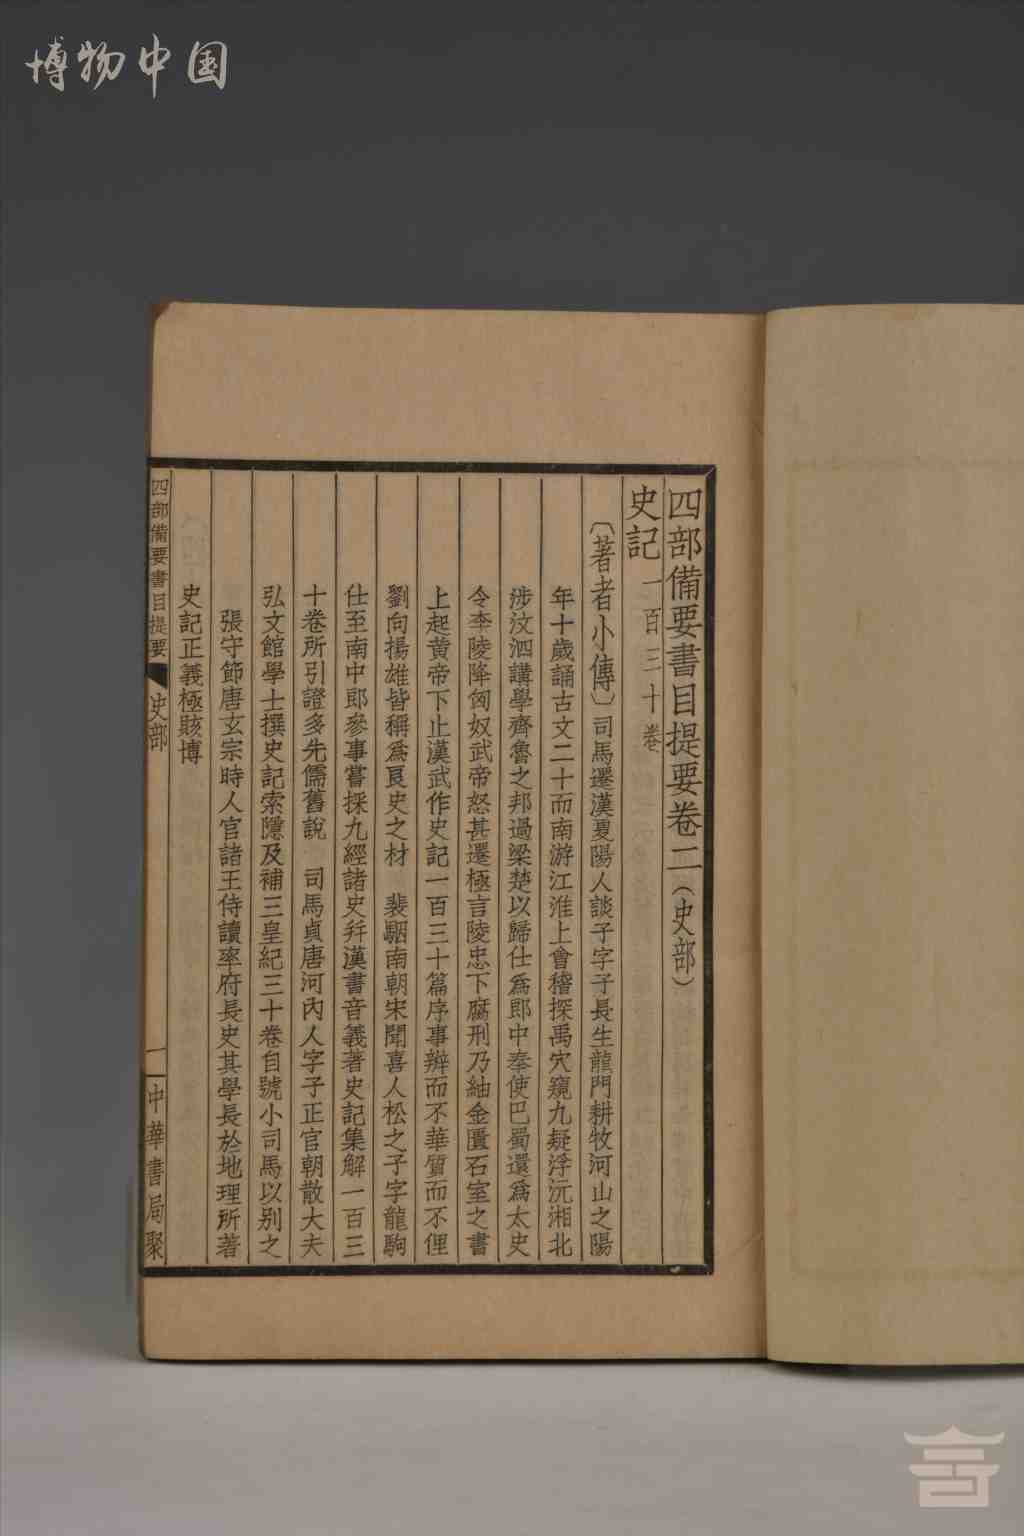 博物中国
四部備要書目提要卷二(史部)
史記一百三十卷
〔著者小傳〕司馬遷漢夏陽人談子字子長生龍門耕牧河山之陽
年十歲誦古文二十而南游江淮上會稽探禹穴窺九疑浮沅湘北
涉汶泗講學齊魯之邦過梁楚以歸仕爲郎中奉使巴蜀還爲太史
令李陵降匈奴武帝怒甚遷極言陵忠下腐刑乃紬金匱石室之書
上起黄帝下止漢武作史記一百三十篇序事辨而不華質而不俚
劉向揚雄皆稱爲良史之材 裴駰南朝宋聞喜人松之子字龍駒
仕至南中郎參事嘗採九經諸史幷漢書音義著史記集解一百三
十卷所引證多先儒舊說 司馬貞唐河內人字子正官朝散大夫
弘文館學士撰史記索隱及補三皇紀三十卷自號小司馬以别之
張守節唐玄宗時人官諸王侍讀率府長史其學長於地理所著
史記正義極賅博
四部備要書目提要 史部 一 中華書局聚